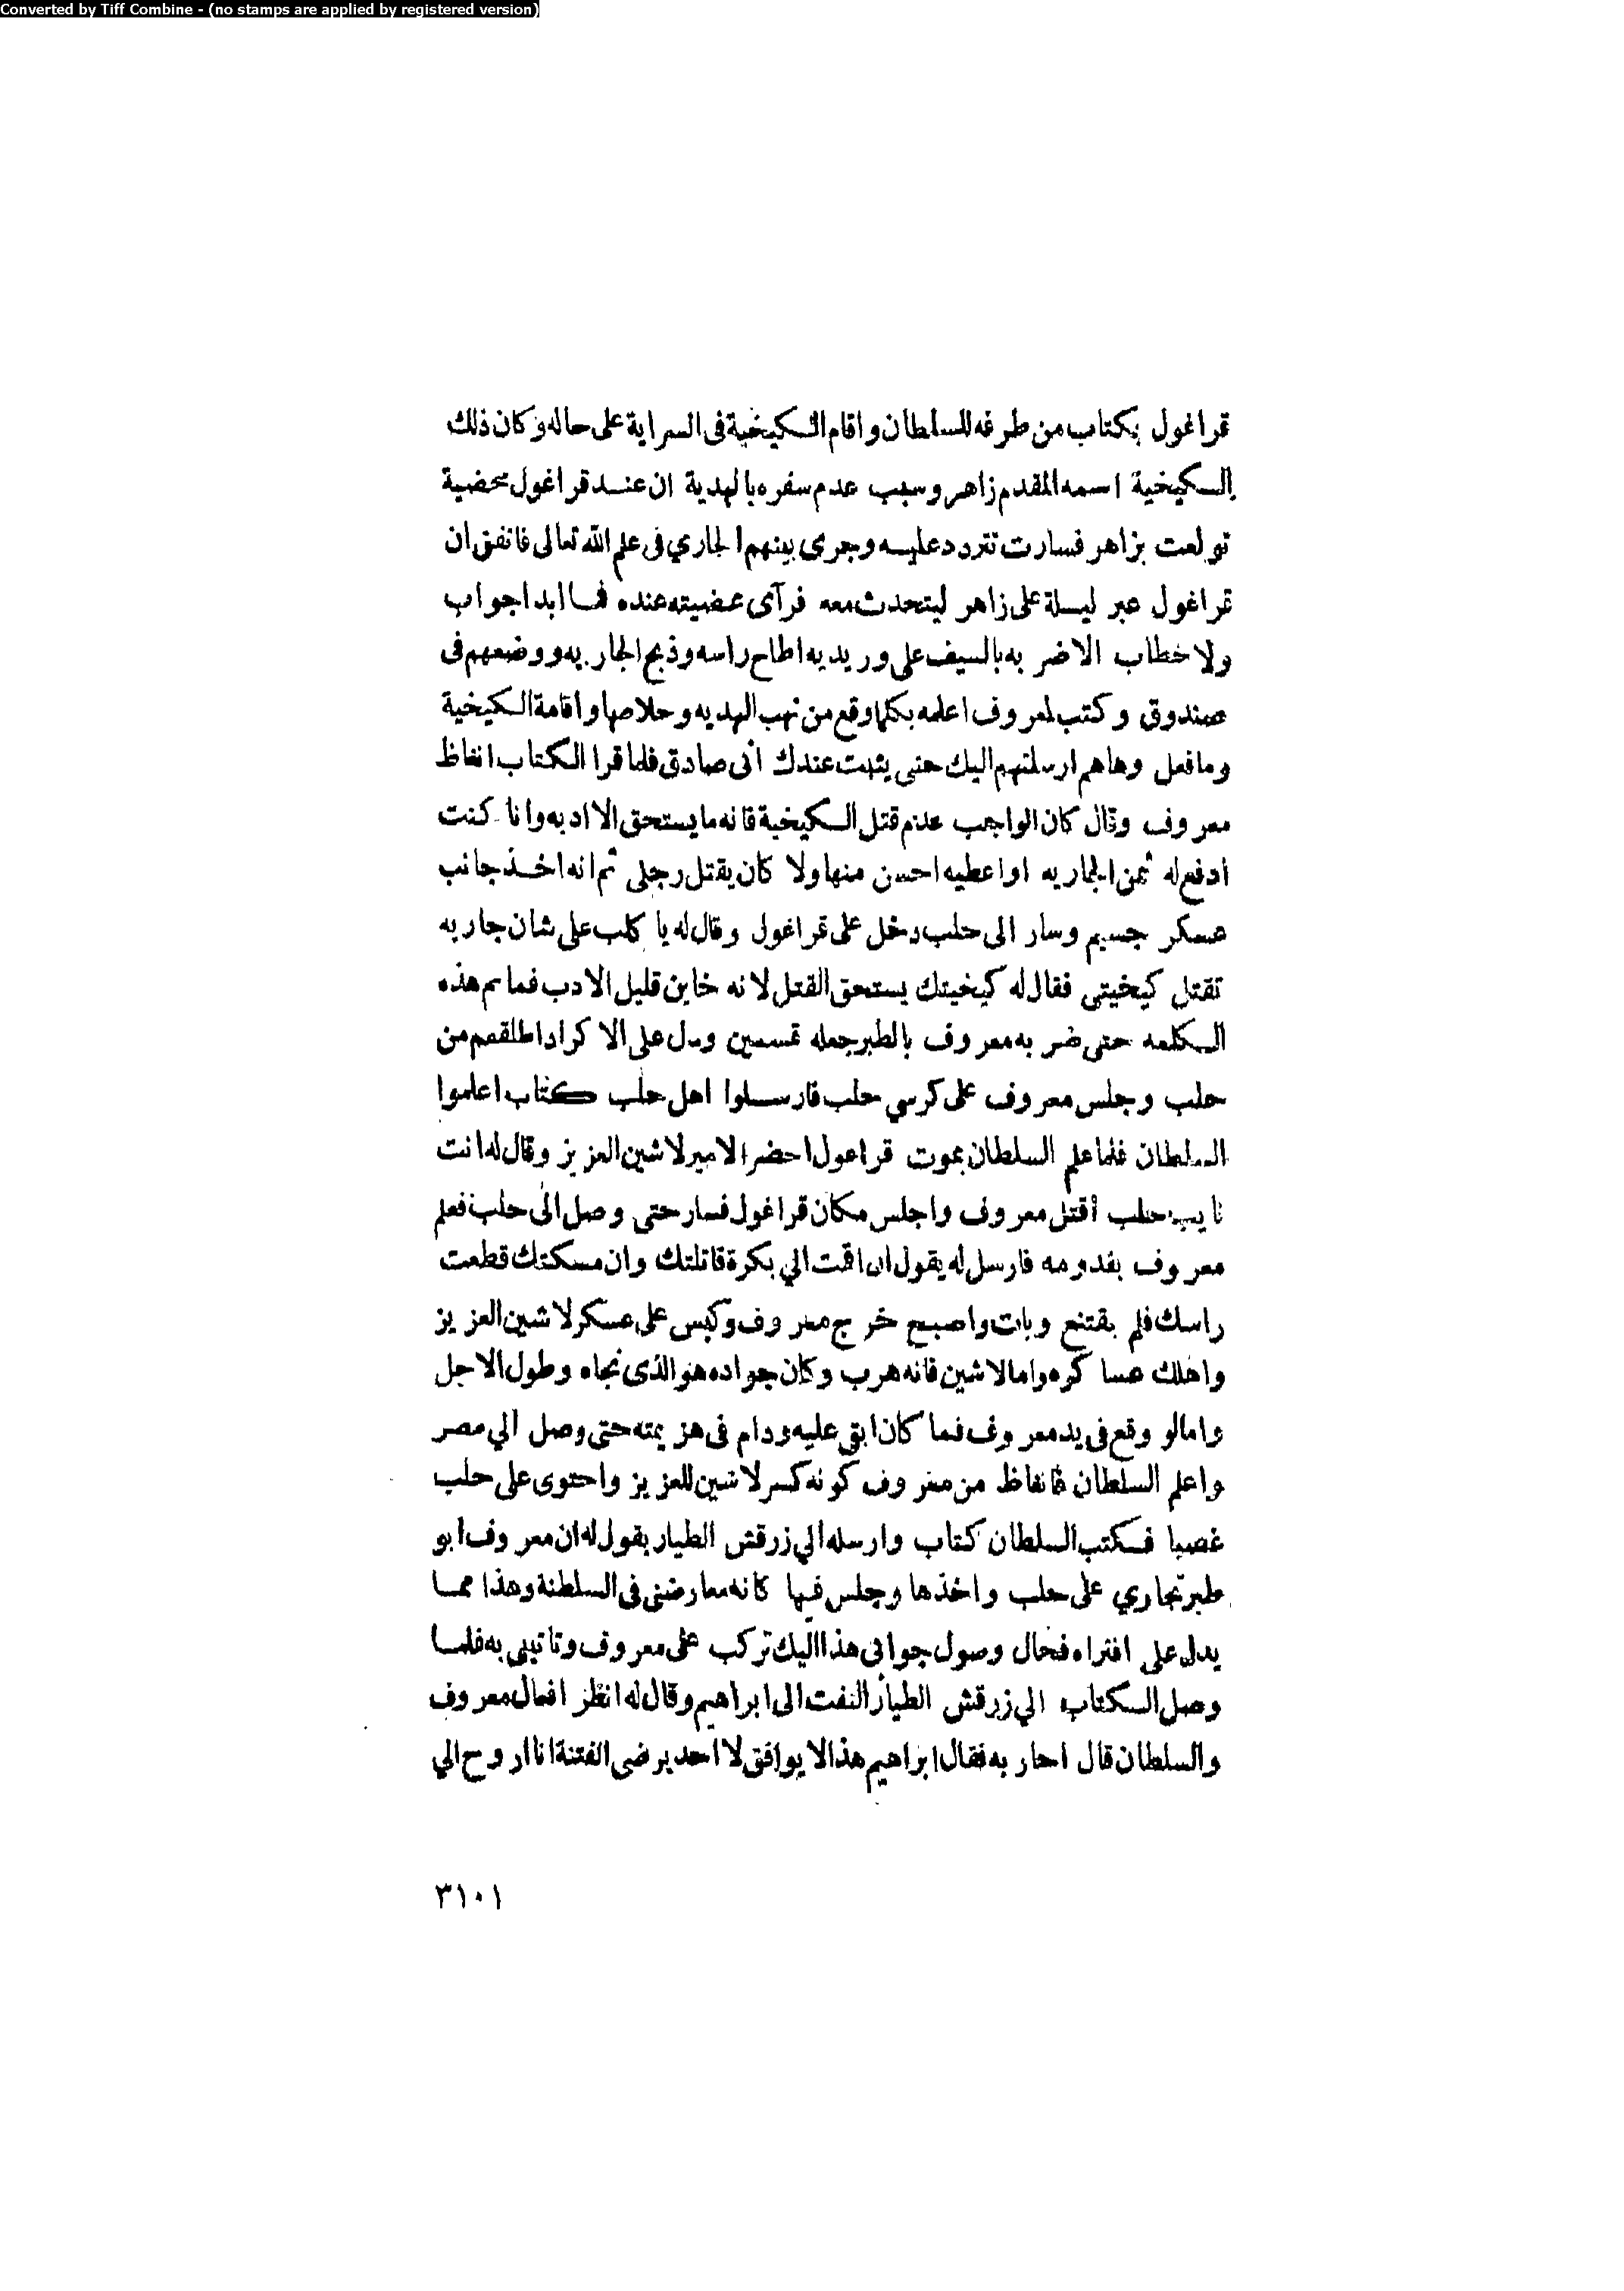 Converted by Tiff Combine - (no stamps are applied by registered version)
قراغول بكتاب من طرفه للسلطان واقام الكيخية فى السراية على حاله وكان ذلك
الكيخية اسمه المقدم زاهر وسبب عدم سفره بالهدية ان عند قراغول محضية
تولعت بزاهر فسارت تتردد عليه وجرى بينهم الجاري فى علم الله تعالى فاتفق ان
قراغول عبر ليلة على زاهر ليتحدث معه فرآى عضيته عنده فما ابدا جواب
ولا خطاب الا ضربه بالسيف على وريديه اطاح راسه وذبح الجاريه ووضعهم فى
صندوق وكتب لمعروف اعلمه بكلما وقع من نهب الهديه وخلاصها واقامة الكيخية
وما فعل وهاهم ارسلتهم اليك حتى يثبت عندك أنى صادق فلما قرا الكتاب انغاظ
معروف وقال كان الواجب عدم قتل الكيخية فانه ما يستحق الا ادبه وانا كنت
ادفع له ثمن الجاريه او اعطيه احسن منها ولا كان يقتل رجلى ثم انه اخذ جانب
عسكر جسيم وسار الى حلب دخل على قراغول وقال له يا كلب على شان جاريه
تقتل كيخيتى فقال له كيخيتك يستحق القتل لانه خاين قليل الادب فما تم هذه
الكلمه حتى ضربه معروف بالطبر جعله قسمين ومال على الاكراد اطلقهم من
حلب وجلس معروف على كرسي حلب فارسلوا اهل حلب كتاب اعلموا
السلطان فلما علم السلطان بموت قراغول احضر الامير لاشين العزيز وقال له انت
نايب حلب أقتل معروف واجلس مكان قراغول فسار حتى وصل الى حلب فعلم
معروف بقدومه فارسل له يقول ان اقمت الي بكرة قاتلتك وان مسكتك قطعت
راسك فلم يقتنع وبات واصبح خرج معروف وكبس على عسكر لاشين العزيز
واهلك عساكره واما لاشين فانه هرب وكان جواده هو الذى نجاه وطول الاجل
واما لو وقع فى يد معروف فما كان ابقى عليه ودام فى هزيمته حتى وصل الي مصر
واعلم السلطان فانغاظ من معروف كونه كسر لاشين العزيز واحتوى على حلب
غصبا فكتب السلطان كتاب وارسله الي زرقش الطيار يقول له ان معروف ابو
طبر تجاري على حلب واخذها وجلس فيها كانه معارضنى فى السلطنة وهذا مما
يدل على افتراه فحال وصول جوابى هذا اليك تركب على معروف وتاتينى به فلما
وصل الكتاب الي زرقش الطيار التفت الى ابراهيم وقال له انظر افعال معروف
والسلطان قال احاربه فقال ابراهيم هذا لا يوافق لا احد يرضى الفتنة انا اروح الي
٣١٠١